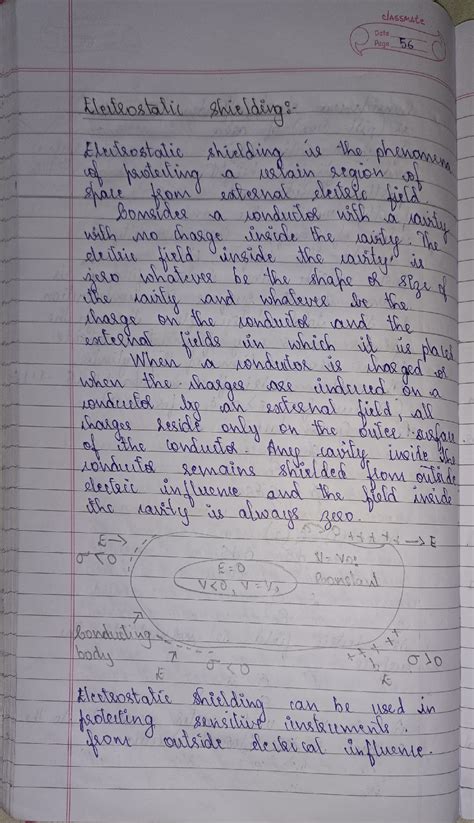 classmate
Date
Page 56
Electrostatic Shielding:-
Electrostatic shielding is the phenomena
of protecting a certain region of
space from external electric field.
Consider a conductor with a cavity
with no charge inside the cavity. The
electric field inside the cavity is
zero whatever be the shape or size of
the cavity and whatever be the
charge on the conductor and the
external fields in which it is placed
When a conductor is charged or
when the charges are induced on a
conductor by an external field, all
charges reside only on the outer surface
of the conductor. Any cavity inside the
conductor remains shielded from outside
electric influence and the field inside
the cavity is always zero.
E → σ > 0 + + + + → E
σ < 0 E = 0 V = V
V < 0, V = V Constant
Conducting
body E σ < 0 + + + + σ > 0
E
Electrostatic shielding can be used in
protecting sensitive instruments
from outside electrical influence.